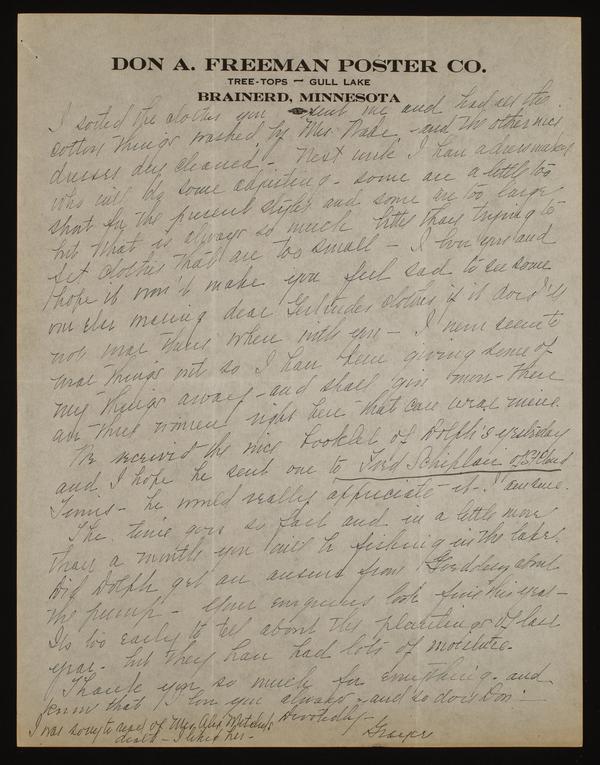 DON A. FREEMAN POSTER CO.
TREE-TOPS — GULL LAKE
BRAINERD, MINNESOTA
I sorted the clothes you sent me and had all the
cotton things washed by Mrs. and the other nice
dresses dry cleaned - Next week I have a dressmaker
who will do some adjusting - some are a little too
short for the present styles and some are too large
but that is always so much better than trying to
fit clothes that are too small - I love you and
I hope it won't make you feel sad to see some
one else wearing dear Gertrudes clothes, if it does I'll
not wear them when with you - I never seem to
wear things out so I have been giving some of
my things away - and shall give more - There
are three women right here that can wear mine.
We received the nice booklet of Dolph's yesterday
and I hope he sent one to Fred Schiplin of St Cloud
Times - he would really appreciate it - I am sure.
The time goes so fast and in a little more
than a month you will be fishing in the lake.
Did Dolph get an answer from about
the pump - Your evergreens look fine this year -
Its too early to tell about the plantings of last
year - but they have had lots of moisture.
Thank you so much for everything - and
know that I love you always - and so does Don -
Devotedly -
I was sorry to read of Mrs. Alex Mitchels
death - I liked her -